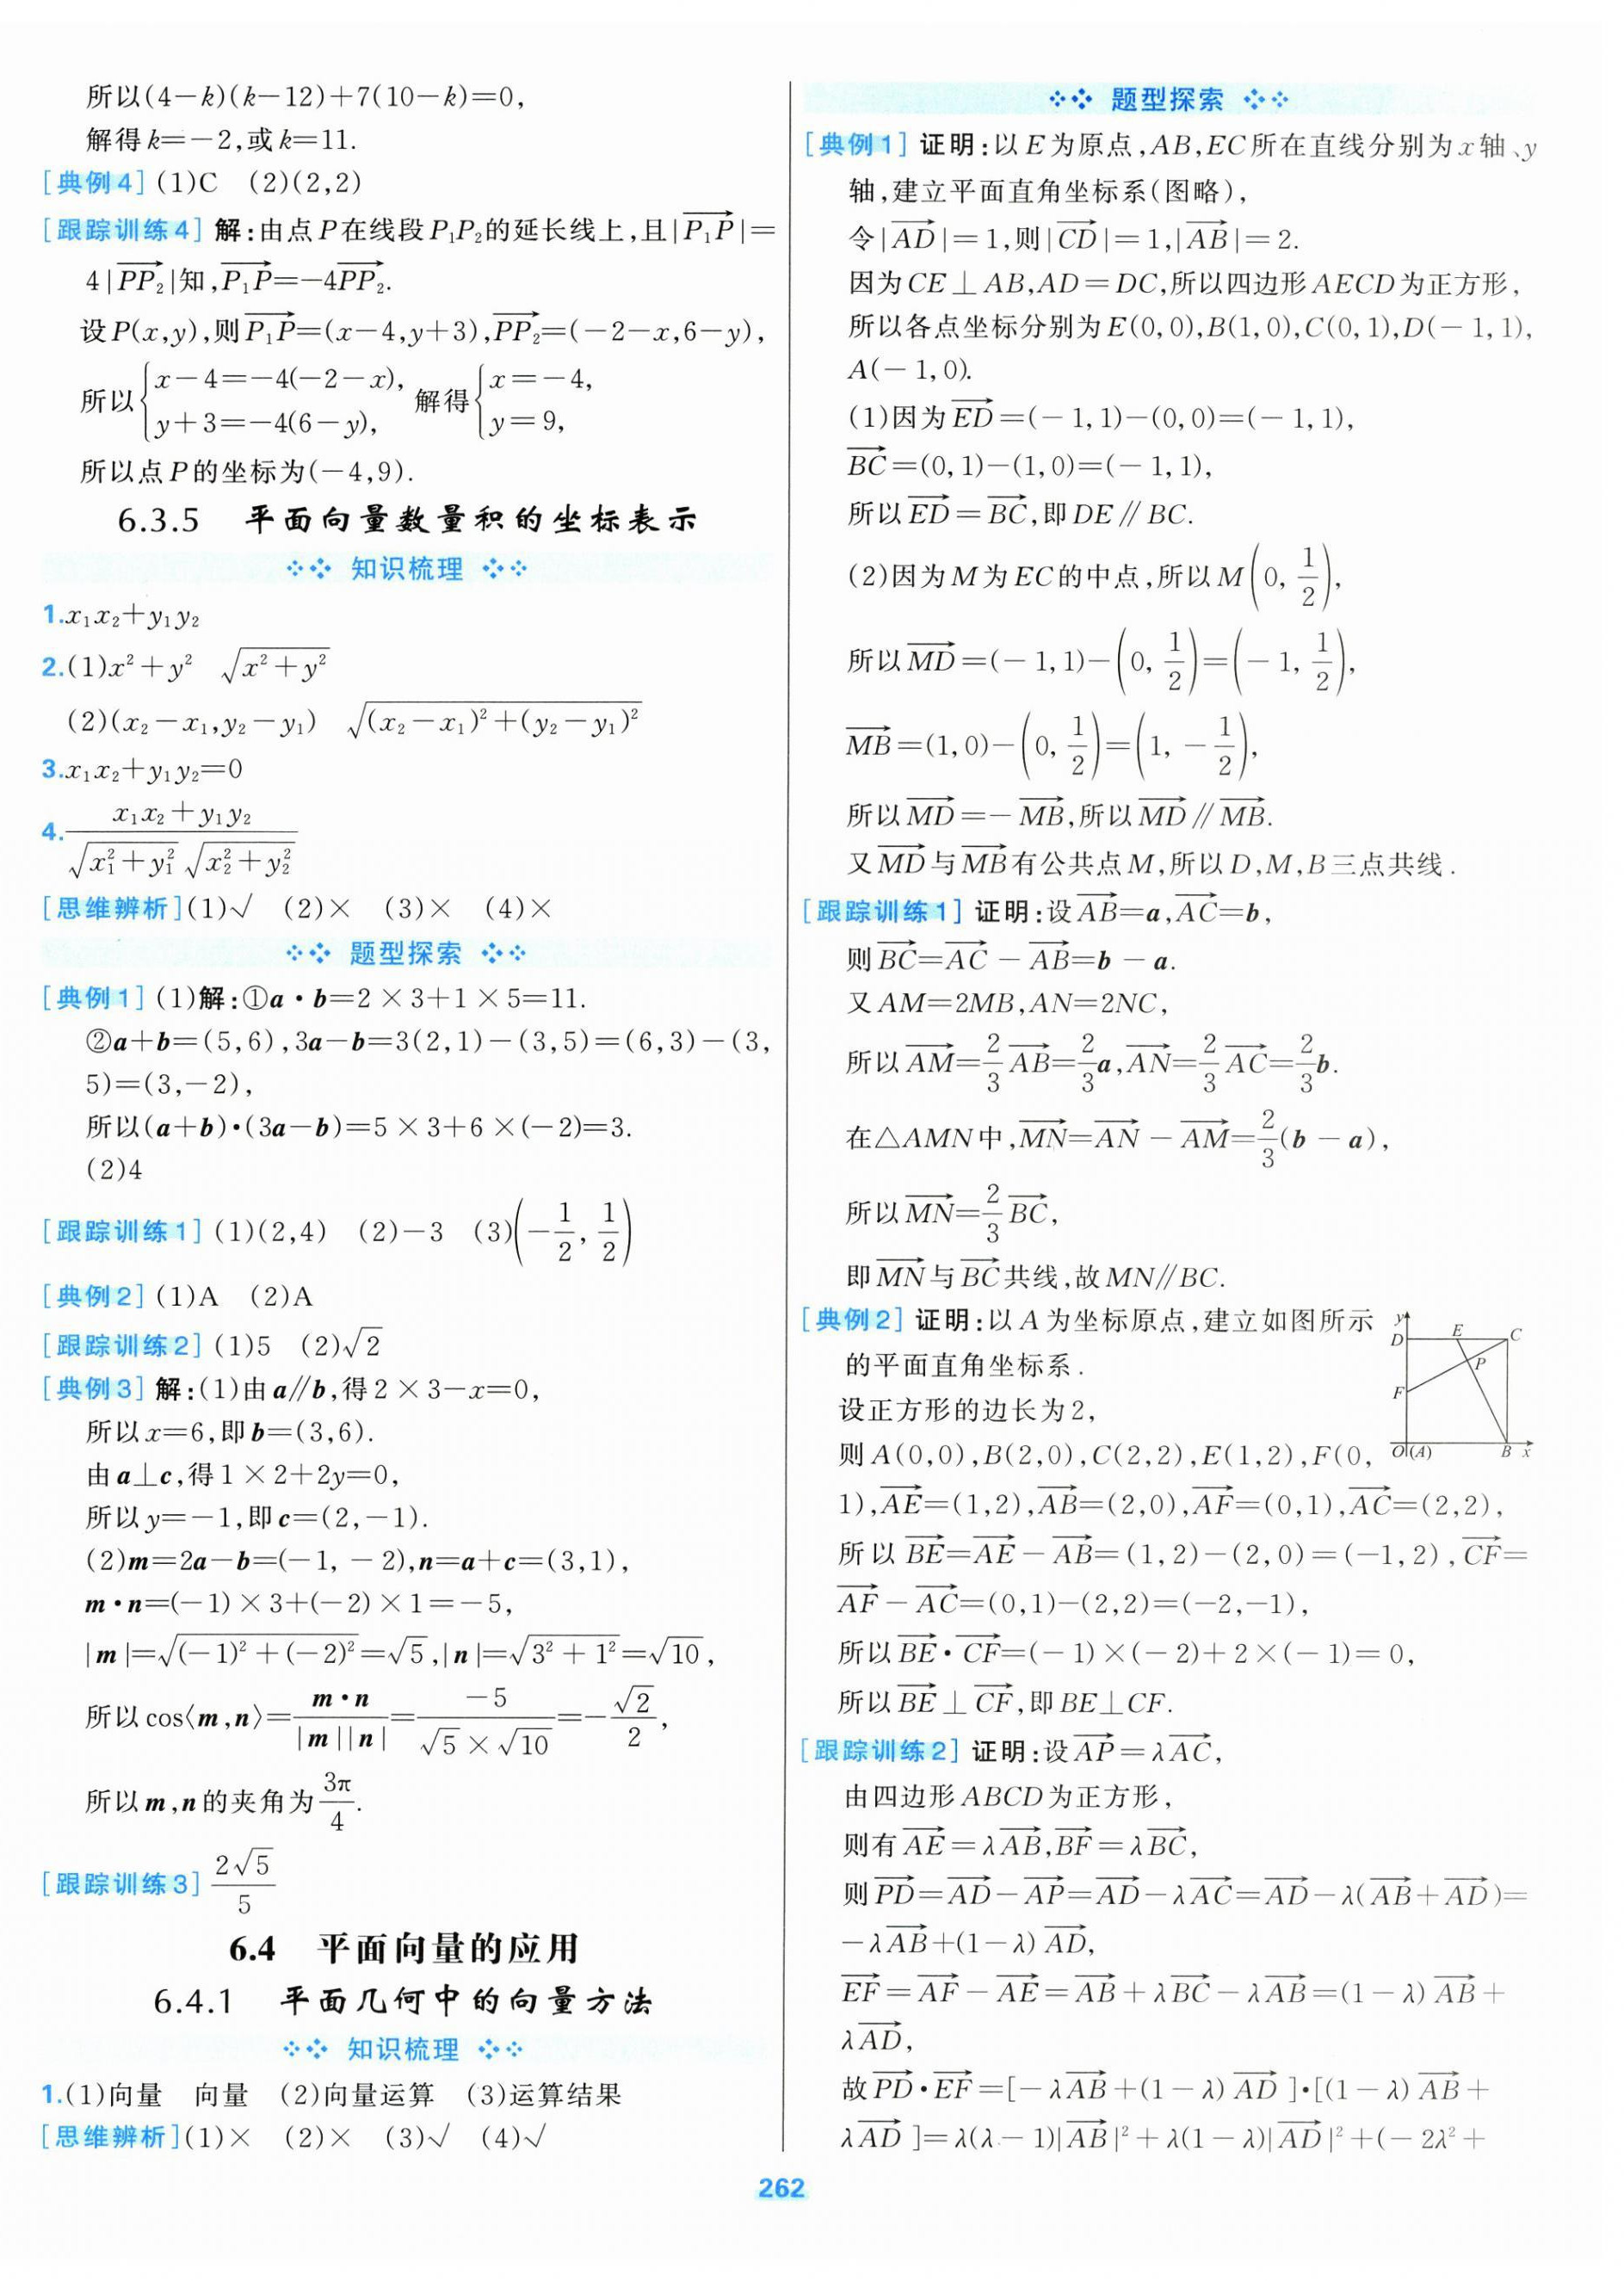 所以(4-k)(k-12)+7(10-k)=0,
解得k=-2,或k=11.
[典例4] (1)C (2)(2,2)
[跟踪训练4] 解:由点P在线段P₁P₂的延长线上,且|$\overrightarrow{P_1P}$|=
4|$\overrightarrow{PP_2}$|知,$\overrightarrow{P_1P}$=-4$\overrightarrow{PP_2}$.
设P(x,y),则$\overrightarrow{P_1P}$=(x-4,y+3),$\overrightarrow{PP_2}$=(-2-x,6-y),
所以$\begin{cases}x-4=-4(-2-x),\\y+3=-4(6-y),\end{cases}$ 解得$\begin{cases}x=-4,\\y=9,\end{cases}$
所以点P的坐标为(-4,9).
6.3.5 平面向量数量积的坐标表示
知识梳理
1.x₁x₂+y₁y₂
2.(1)x²+y² $\sqrt{x^2+y^2}$
(2)(x₂-x₁,y₂-y₁) $\sqrt{(x_2-x_1)^2+(y_2-y_1)^2}$
3.x₁x₂+y₁y₂=0
4.$\frac{x_1x_2+y_1y_2}{\sqrt{x_1^2+y_1^2}\sqrt{x_2^2+y_2^2}}$
[思维辨析](1)√ (2)× (3)× (4)×
题型探索
[典例1] (1)解:①a·b=2×3+1×5=11.
②a+b=(5,6),3a-b=3(2,1)-(3,5)=(6,3)-(3,
5)=(3,-2),
所以(a+b)·(3a-b)=5×3+6×(-2)=3.
(2)4
[跟踪训练1] (1)(2,4) (2)-3 (3)$\left(-\frac{1}{2},\frac{1}{2}\right)$
[典例2] (1)A (2)A
[跟踪训练2] (1)5 (2)$\sqrt{2}$
[典例3] 解:(1)由a∥b,得2×3-x=0,
所以x=6,即b=(3,6).
由a⊥c,得1×2+2y=0,
所以y=-1,即c=(2,-1).
(2)m=2a-b=(-1,-2),n=a+c=(3,1),
m·n=(-1)×3+(-2)×1=-5,
|m|=$\sqrt{(-1)^2+(-2)^2}$=$\sqrt{5}$,|n|=$\sqrt{3^2+1^2}$=$\sqrt{10}$,
所以cos⟨m,n⟩=$\frac{m·n}{|m||n|}$=$\frac{-5}{\sqrt{5}×\sqrt{10}}$=-$\frac{\sqrt{2}}{2}$,
所以m,n的夹角为$\frac{3π}{4}$.
[跟踪训练3] $\frac{2\sqrt{5}}{5}$
6.4 平面向量的应用
6.4.1 平面几何中的向量方法
知识梳理
1.(1)向量 向量 (2)向量运算 (3)运算结果
[思维辨析](1)× (2)× (3)√ (4)√
题型探索
[典例1] 证明:以E为原点,AB,EC所在直线分别为x轴、y
轴,建立平面直角坐标系(图略),
令|$\overrightarrow{AD}$|=1,则|$\overrightarrow{CD}$|=1,|$\overrightarrow{AB}$|=2.
因为CE⊥AB,AD=DC,所以四边形AECD为正方形,
所以各点坐标分别为E(0,0),B(1,0),C(0,1),D(-1,1),
A(-1,0).
(1)因为$\overrightarrow{ED}$=(-1,1)-(0,0)=(-1,1),
$\overrightarrow{BC}$=(0,1)-(1,0)=(-1,1),
所以$\overrightarrow{ED}$=$\overrightarrow{BC}$,即DE∥BC.
(2)因为M为EC的中点,所以M$\left(0,\frac{1}{2}\right)$,
所以$\overrightarrow{MD}$=(-1,1)-$\left(0,\frac{1}{2}\right)$=$\left(-1,\frac{1}{2}\right)$,
$\overrightarrow{MB}$=(1,0)-$\left(0,\frac{1}{2}\right)$=$\left(1,-\frac{1}{2}\right)$,
所以$\overrightarrow{MD}$=-$\overrightarrow{MB}$,所以$\overrightarrow{MD}$∥$\overrightarrow{MB}$.
又$\overrightarrow{MD}$与$\overrightarrow{MB}$有公共点M,所以D,M,B三点共线.
[跟踪训练1] 证明:设$\overrightarrow{AB}$=a,$\overrightarrow{AC}$=b,
则$\overrightarrow{BC}$=$\overrightarrow{AC}$-$\overrightarrow{AB}$=b-a.
又AM=2MB,AN=2NC,
所以$\overrightarrow{AM}$=$\frac{2}{3}\overrightarrow{AB}$=$\frac{2}{3}$a,$\overrightarrow{AN}$=$\frac{2}{3}\overrightarrow{AC}$=$\frac{2}{3}$b.
在△AMN中,$\overrightarrow{MN}$=$\overrightarrow{AN}$-$\overrightarrow{AM}$=$\frac{2}{3}$(b-a),
所以$\overrightarrow{MN}$=$\frac{2}{3}\overrightarrow{BC}$,
即$\overrightarrow{MN}$与$\overrightarrow{BC}$共线,故MN∥BC.
[典例2] 证明:以A为坐标原点,建立如图所示
的平面直角坐标系.
设正方形的边长为2,
则A(0,0),B(2,0),C(2,2),E(1,2),F(0,
y D E C P F O(A) B x
1),$\overrightarrow{AE}$=(1,2),$\overrightarrow{AB}$=(2,0),$\overrightarrow{AF}$=(0,1),$\overrightarrow{AC}$=(2,2),
所以$\overrightarrow{BE}$=$\overrightarrow{AE}$-$\overrightarrow{AB}$=(1,2)-(2,0)=(-1,2),$\overrightarrow{CF}$=
$\overrightarrow{AF}$-$\overrightarrow{AC}$=(0,1)-(2,2)=(-2,-1),
所以$\overrightarrow{BE}$·$\overrightarrow{CF}$=(-1)×(-2)+2×(-1)=0,
所以$\overrightarrow{BE}$⊥$\overrightarrow{CF}$,即BE⊥CF.
[跟踪训练2] 证明:设$\overrightarrow{AP}$=λ$\overrightarrow{AC}$,
由四边形ABCD为正方形,
则有$\overrightarrow{AE}$=λ$\overrightarrow{AB}$,$\overrightarrow{BF}$=λ$\overrightarrow{BC}$,
则$\overrightarrow{PD}$=$\overrightarrow{AD}$-$\overrightarrow{AP}$=$\overrightarrow{AD}$-λ$\overrightarrow{AC}$=$\overrightarrow{AD}$-λ($\overrightarrow{AB}$+$\overrightarrow{AD}$)=
-λ$\overrightarrow{AB}$+(1-λ)$\overrightarrow{AD}$,
$\overrightarrow{EF}$=$\overrightarrow{AF}$-$\overrightarrow{AE}$=$\overrightarrow{AB}$+λ$\overrightarrow{BC}$-λ$\overrightarrow{AB}$=(1-λ)$\overrightarrow{AB}$+
λ$\overrightarrow{AD}$,
故$\overrightarrow{PD}$·$\overrightarrow{EF}$=[-λ$\overrightarrow{AB}$+(1-λ)$\overrightarrow{AD}$]·[(1-λ)$\overrightarrow{AB}$+
λ$\overrightarrow{AD}$]=λ(λ-1)|$\overrightarrow{AB}$|²+λ(1-λ)|$\overrightarrow{AD}$|²+(-2λ²+
262